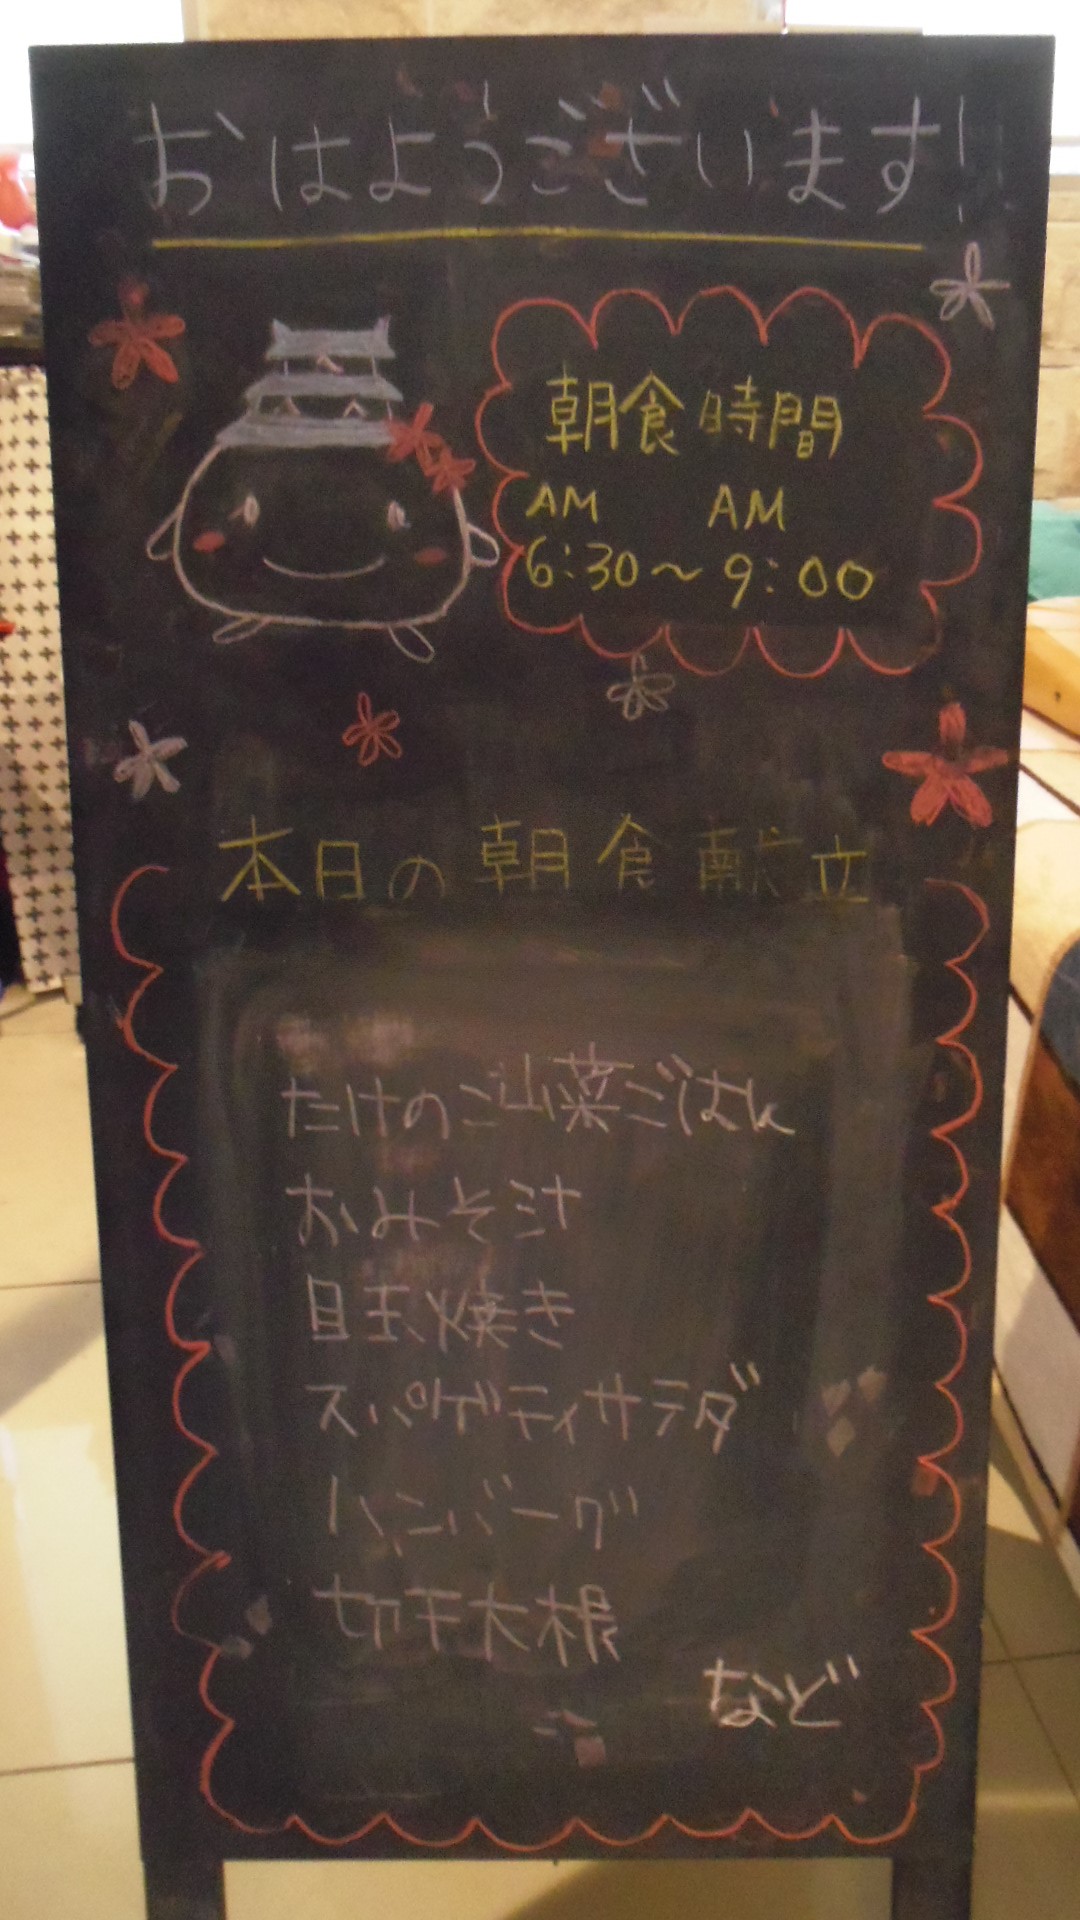 おはようございます!!
朝食時間
AM AM
6:30～9:00
本日の朝食献立
たけのこ山菜ごはん
おみそ汁
目玉焼き
スパゲティサラダ
ハンバーグ
切干大根
など